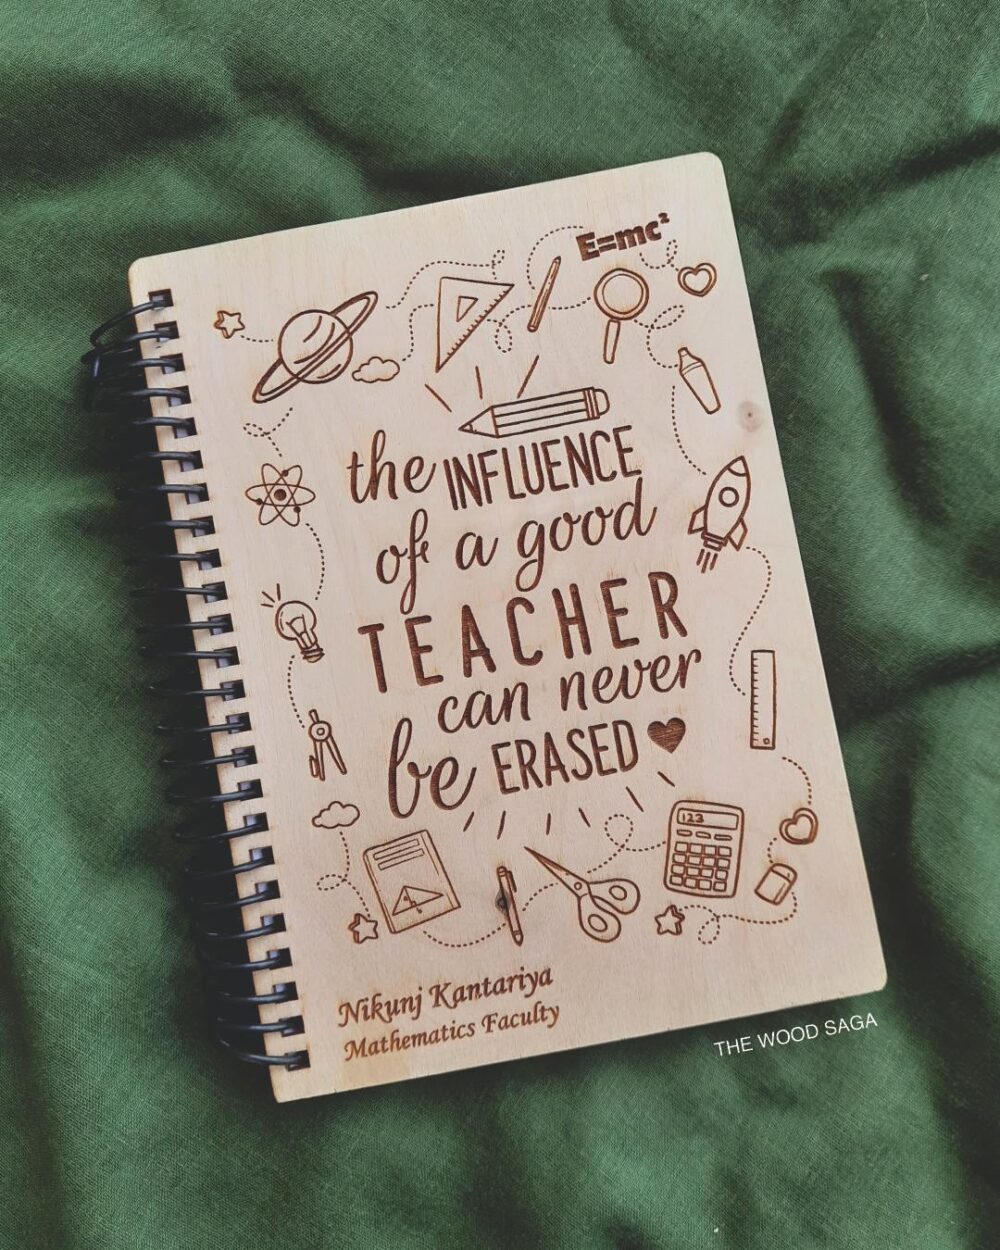 E=mc²
the INFLUENCE
of a good
TEACHER
can never
be ERASED
123
Nikunj Kantariya
Mathematics Faculty
THE WOOD SAGA